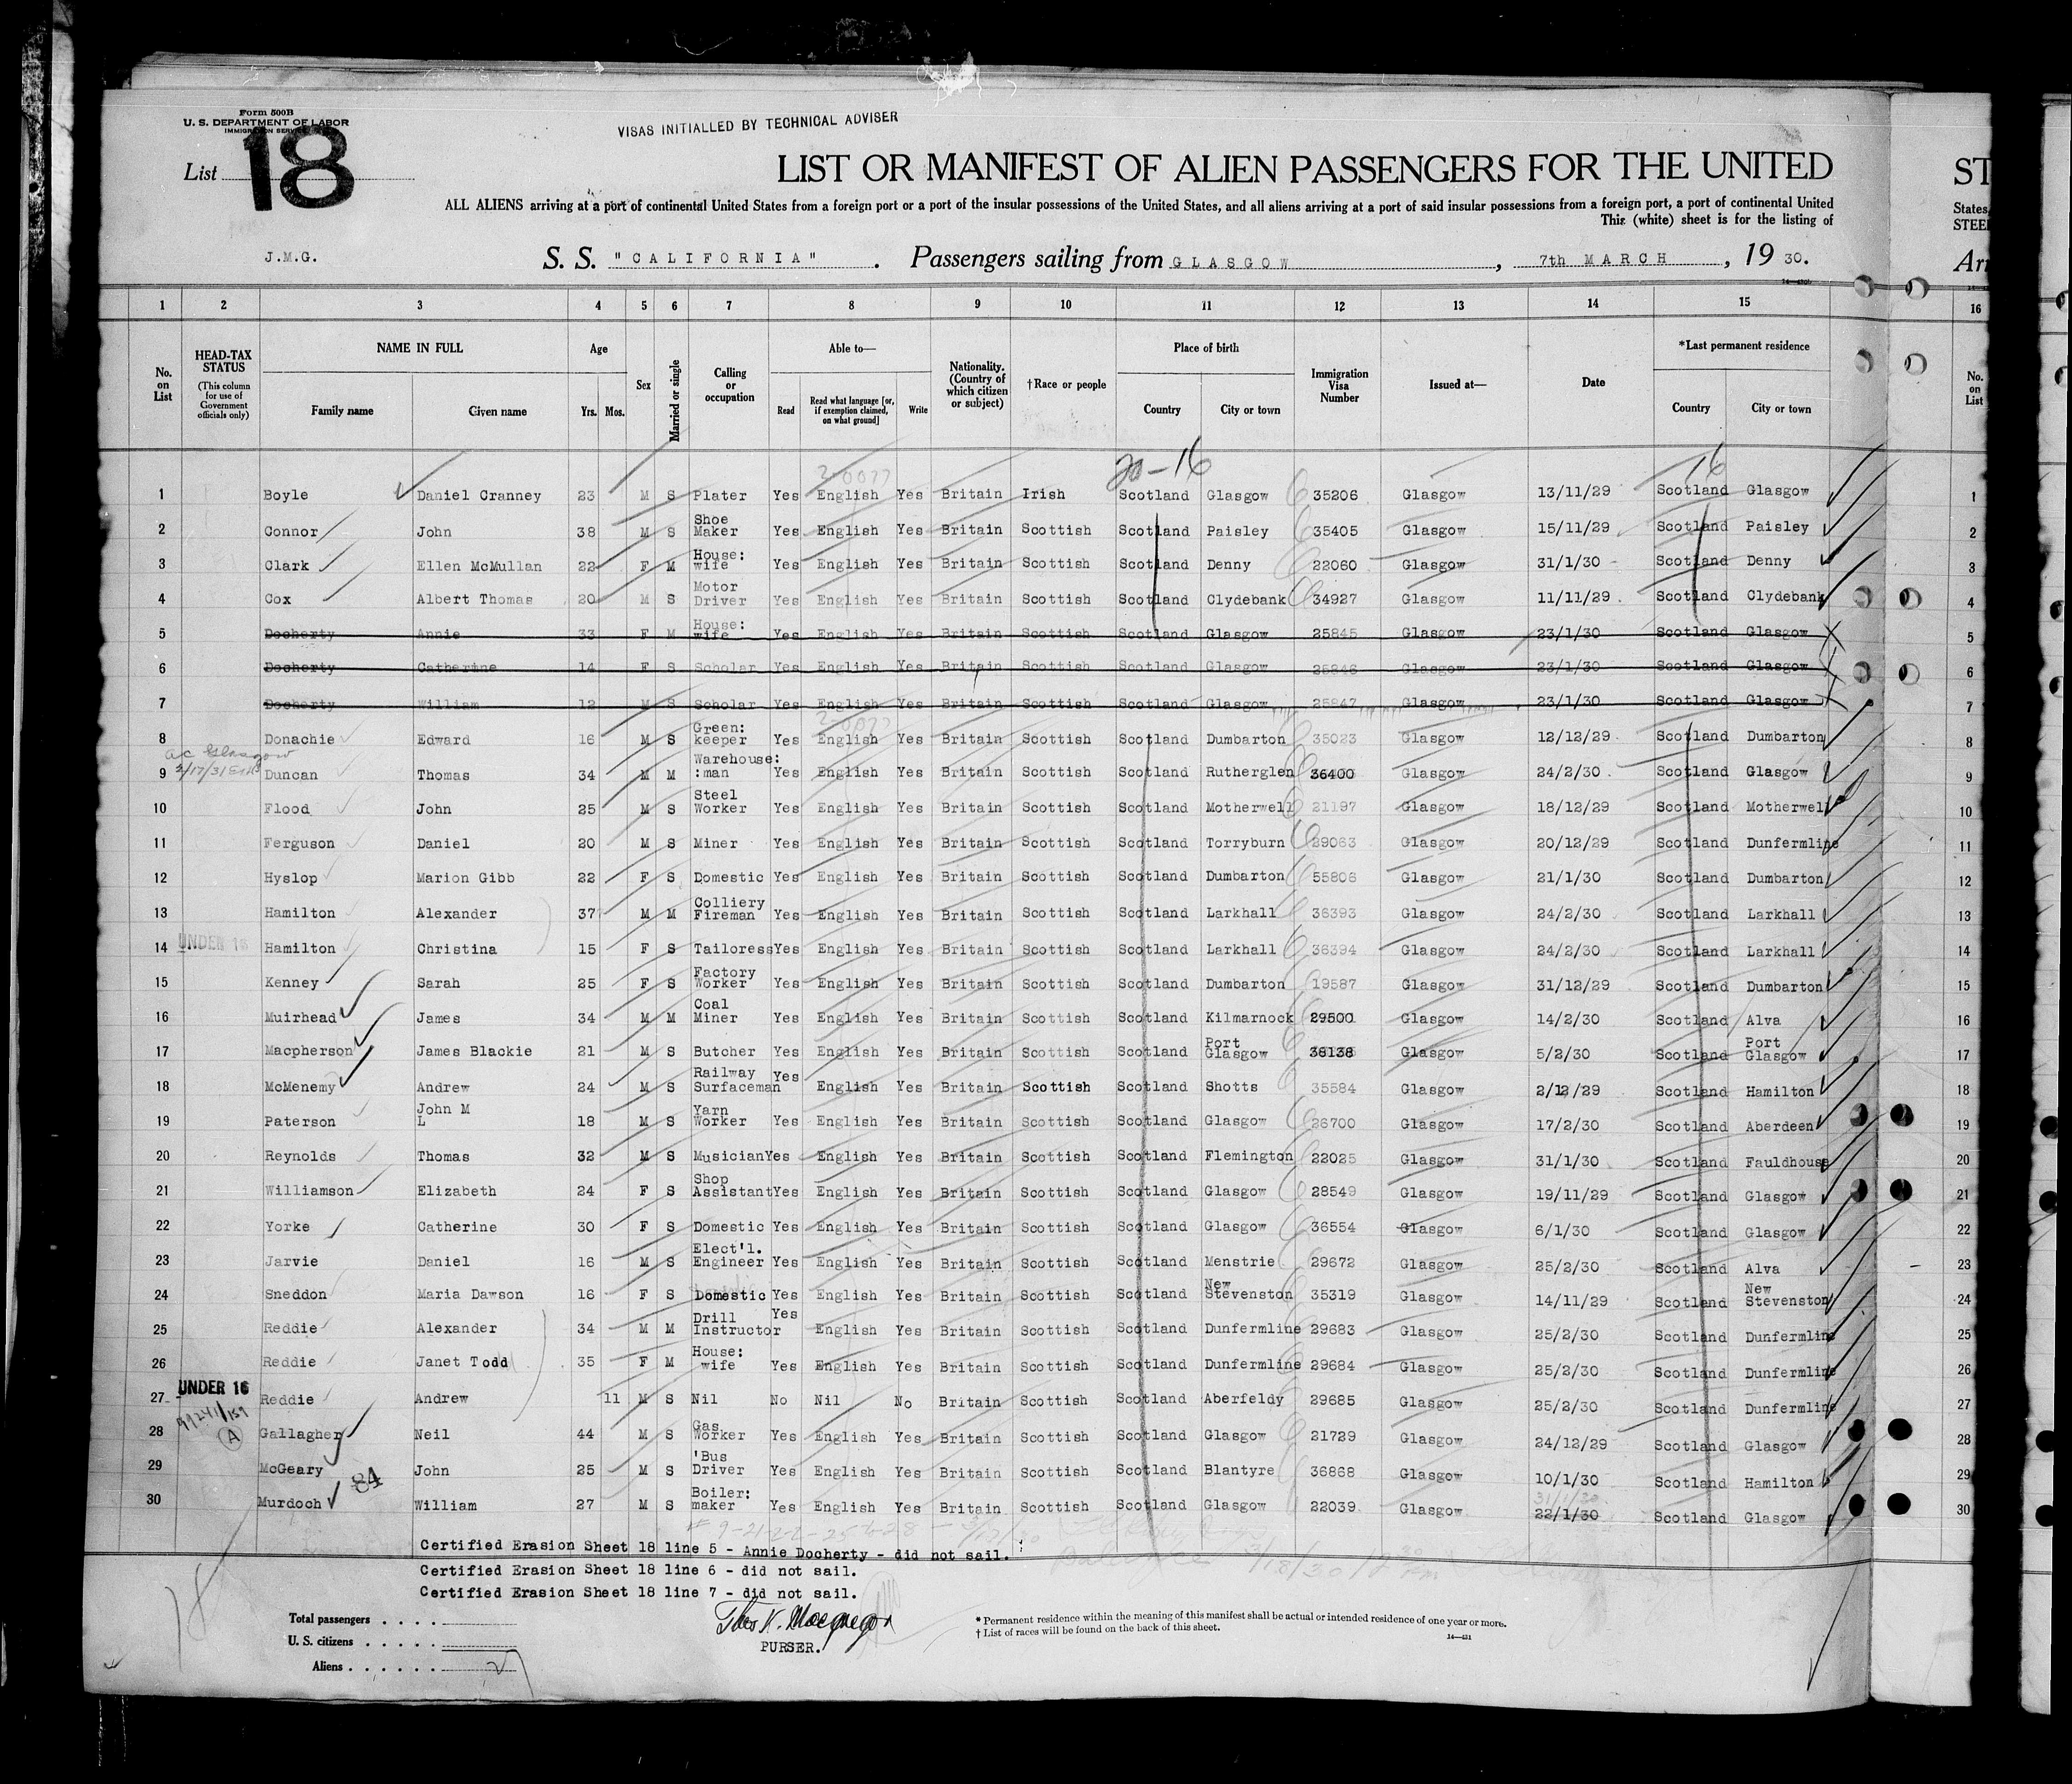 Form 500B
U. S. DEPARTMENT OF LABOR
IMMIGRATION SERVICE
List 18
VISAS INITIALLED BY TECHNICAL ADVISER
LIST OR MANIFEST OF ALIEN PASSENGERS FOR THE UNITED
ALL ALIENS arriving at a port of continental United States from a foreign port or a port of the insular possessions of the United States, and all aliens arriving at a port of said insular possessions from a foreign port, a port of continental United
This (white) sheet is for the listing of
J.M.G. S. S. "CALIFORNIA" . Passengers sailing from GLASGOW , 7th MARCH , 19 30.
1 2 3 4 5 6 7 8 9 10 11 12 13 14 15
No. on List HEAD-TAX STATUS (This column for use of Government officials only) NAME IN FULL Family name Given name Age Yrs. Mos. Sex Married or single Calling or occupation Able to— Read Read what language [or, if exemption claimed, on what ground] Write Nationality. (Country of which citizen or subject) †Race or people Place of birth Country City or town Immigration Visa Number Issued at— Date *Last permanent residence Country City or town
20-16 16
1 Boyle Daniel Cranney 23 M S Plater Yes English Yes Britain Irish Scotland Glasgow 35206 Glasgow 13/11/29 Scotland Glasgow
2 Connor John 38 M S Shoe Maker Yes English Yes Britain Scottish Scotland Paisley 35405 Glasgow 15/11/29 Scotland Paisley
3 Clark Ellen McMullan 22 F M House: wife Yes English Yes Britain Scottish Scotland Denny 22060 Glasgow 31/1/30 Scotland Denny
4 Cox Albert Thomas 20 M S Motor Driver Yes English Yes Britain Scottish Scotland Clydebank 34927 Glasgow 11/11/29 Scotland Clydebank
5 Docherty Annie 33 F M House: wife Yes English Yes Britain Scottish Scotland Glasgow 25845 Glasgow 23/1/30 Scotland Glasgow
6 Docherty Catherine 14 F S Scholar Yes English Yes Britain Scottish Scotland Glasgow 25846 Glasgow 23/1/30 Scotland Glasgow
7 Docherty William 12 M S Scholar Yes English Yes Britain Scottish Scotland Glasgow 25847 Glasgow 23/1/30 Scotland Glasgow
8 Donachie Edward 16 M S Green: keeper Yes English Yes Britain Scottish Scotland Dumbarton 35023 Glasgow 12/12/29 Scotland Dumbarton
9 Duncan Thomas 34 M M Warehouse: :man Yes English Yes Britain Scottish Scotland Rutherglen 36400 Glasgow 24/2/30 Scotland Glasgow
10 Flood John 25 M S Steel Worker Yes English Yes Britain Scottish Scotland Motherwell 21197 Glasgow 18/12/29 Scotland Motherwell
11 Ferguson Daniel 20 M S Miner Yes English Yes Britain Scottish Scotland Torryburn 29063 Glasgow 20/12/29 Scotland Dunfermline
12 Hyslop Marion Gibb 22 F S Domestic Yes English Yes Britain Scottish Scotland Dumbarton 55806 Glasgow 21/1/30 Scotland Dumbarton
13 Hamilton Alexander 37 M M Colliery Fireman Yes English Yes Britain Scottish Scotland Larkhall 36393 Glasgow 24/2/30 Scotland Larkhall
14 UNDER 16 Hamilton Christina 15 F S Tailoress Yes English Yes Britain Scottish Scotland Larkhall 36394 Glasgow 24/2/30 Scotland Larkhall
15 Kenney Sarah 25 F S Factory Worker Yes English Yes Britain Scottish Scotland Dumbarton 19587 Glasgow 31/12/29 Scotland Dumbarton
16 Muirhead James 34 M M Coal Miner Yes English Yes Britain Scottish Scotland Kilmarnock 29500 Glasgow 14/2/30 Scotland Alva
17 Macpherson James Blackie 21 M S Butcher Yes English Yes Britain Scottish Scotland Port Glasgow 38138 Glasgow 5/2/30 Scotland Port Glasgow
18 McMenemy Andrew 24 M S Railway Surfaceman Yes English Yes Britain Scottish Scotland Shotts 35584 Glasgow 2/12/29 Scotland Hamilton
19 Paterson John M L 18 M S Yarn Worker Yes English Yes Britain Scottish Scotland Glasgow 26700 Glasgow 17/2/30 Scotland Aberdeen
20 Reynolds Thomas 32 M S Musician Yes English Yes Britain Scottish Scotland Flemington 22025 Glasgow 31/1/30 Scotland Fauldhouse
21 Williamson Elizabeth 24 F S Shop Assistant Yes English Yes Britain Scottish Scotland Glasgow 28549 Glasgow 19/11/29 Scotland Glasgow
22 Yorke Catherine 30 F S Domestic Yes English Yes Britain Scottish Scotland Glasgow 36554 Glasgow 6/1/30 Scotland Glasgow
23 Jarvie Daniel 16 M S Elect'l. Engineer Yes English Yes Britain Scottish Scotland Menstrie 29672 Glasgow 25/2/30 Scotland Alva
24 Sneddon Maria Dawson 16 F S Domestic Yes English Yes Britain Scottish Scotland New Stevenston 35319 Glasgow 14/11/29 Scotland New Stevenston
25 Reddie Alexander 34 M M Drill Instructor Yes English Yes Britain Scottish Scotland Dunfermline 29683 Glasgow 25/2/30 Scotland Dunfermline
26 Reddie Janet Todd 35 F M House: wife Yes English Yes Britain Scottish Scotland Dunfermline 29684 Glasgow 25/2/30 Scotland Dunfermline
27 UNDER 16 Reddie Andrew 11 M S Nil No Nil No Britain Scottish Scotland Aberfeldy 29685 Glasgow 25/2/30 Scotland Dunfermline
28 Gallagher Neil 44 M S Gas Worker Yes English Yes Britain Scottish Scotland Glasgow 21729 Glasgow 24/12/29 Scotland Glasgow
29 McGeary 84 John 25 M S 'Bus Driver Yes English Yes Britain Scottish Scotland Blantyre 36868 Glasgow 10/1/30 Scotland Hamilton
30 Murdoch William 27 M S Boiler: maker Yes English Yes Britain Scottish Scotland Glasgow 22039 Glasgow 22/1/30 Scotland Glasgow
Certified Erasion Sheet 18 line 5 - Annie Docherty - did not sail.
Certified Erasion Sheet 18 line 6 - did not sail.
Certified Erasion Sheet 18 line 7 - did not sail.
Total passengers . . . .
U. S. citizens . . . . .
Aliens . . . . . . 27
Thos K. Macgregor
PURSER.
* Permanent residence within the meaning of this manifest shall be actual or intended residence of one year or more.
† List of races will be found on the back of this sheet.
14—431
ST
States,
STEE
Arr
16
No. on List
1
2
3
4
5
6
7
8
9
10
11
12
13
14
15
16
17
18
19
20
21
22
23
24
25
26
27
28
29
30